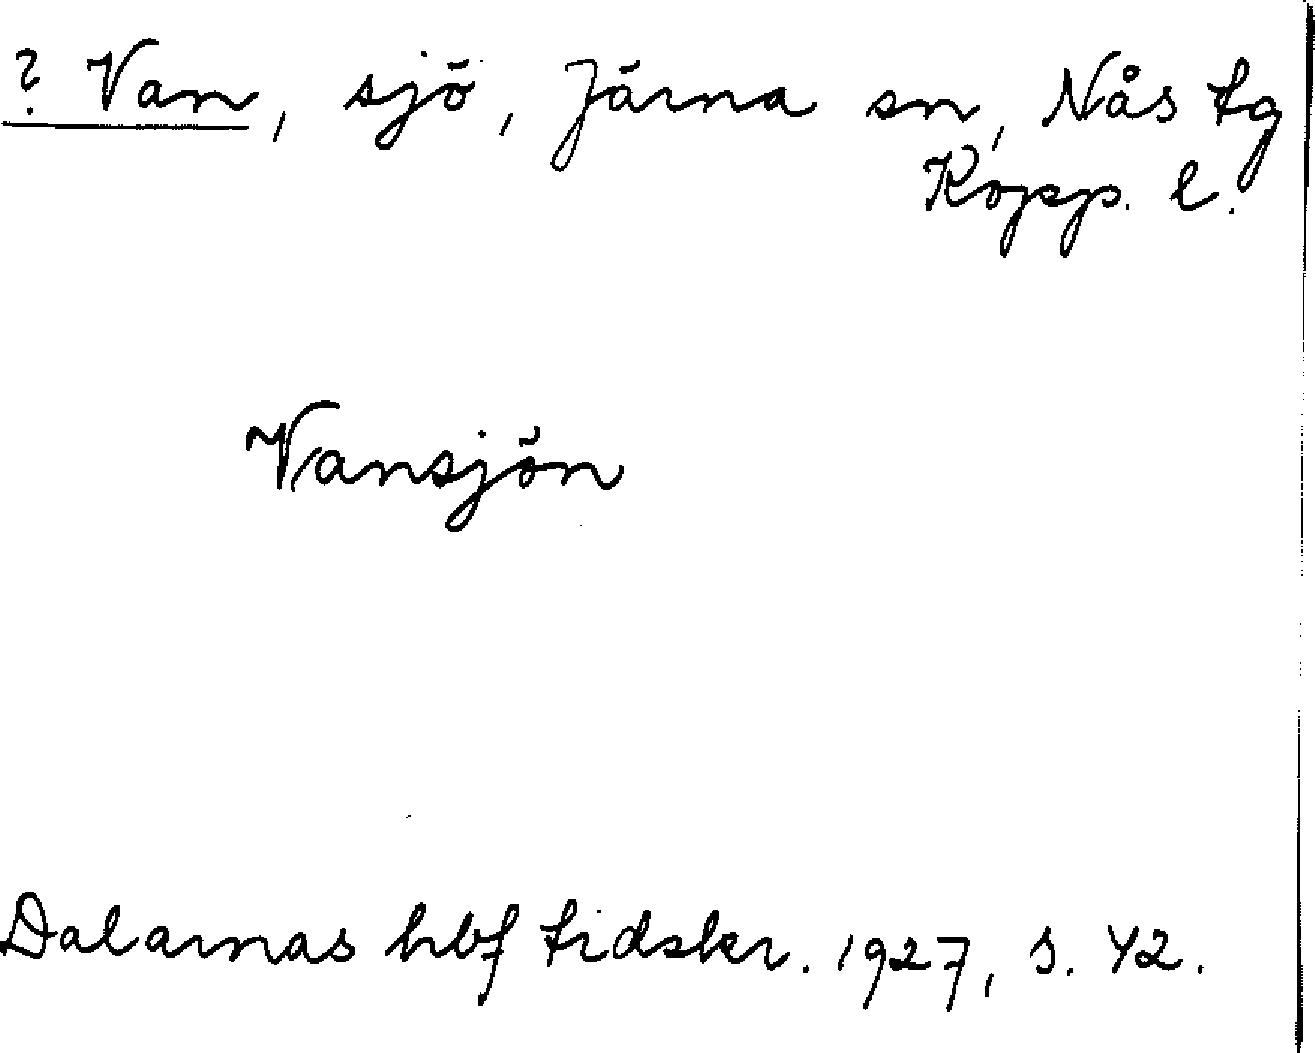 ? Van, sjö, Järna sn, Nås tg
Kopp. l.
Vansjön
Dalarnas hbf tidskr. 1927, s. 42.